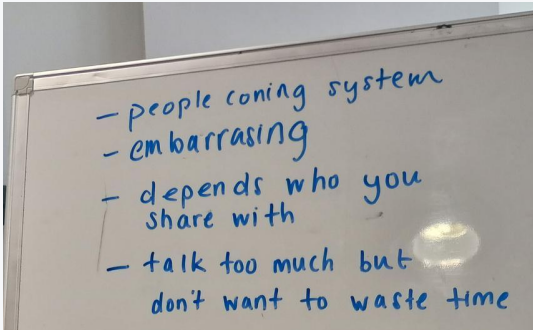 - people coning system
- embarrasing
- depends who you
share with
- talk too much but
don't want to waste time